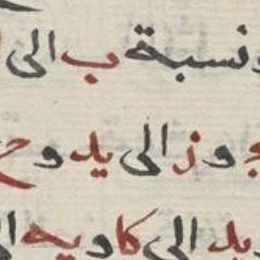 ونسبة ب الى
ج و ز الى يد و ح
يد الى كا و يه الى